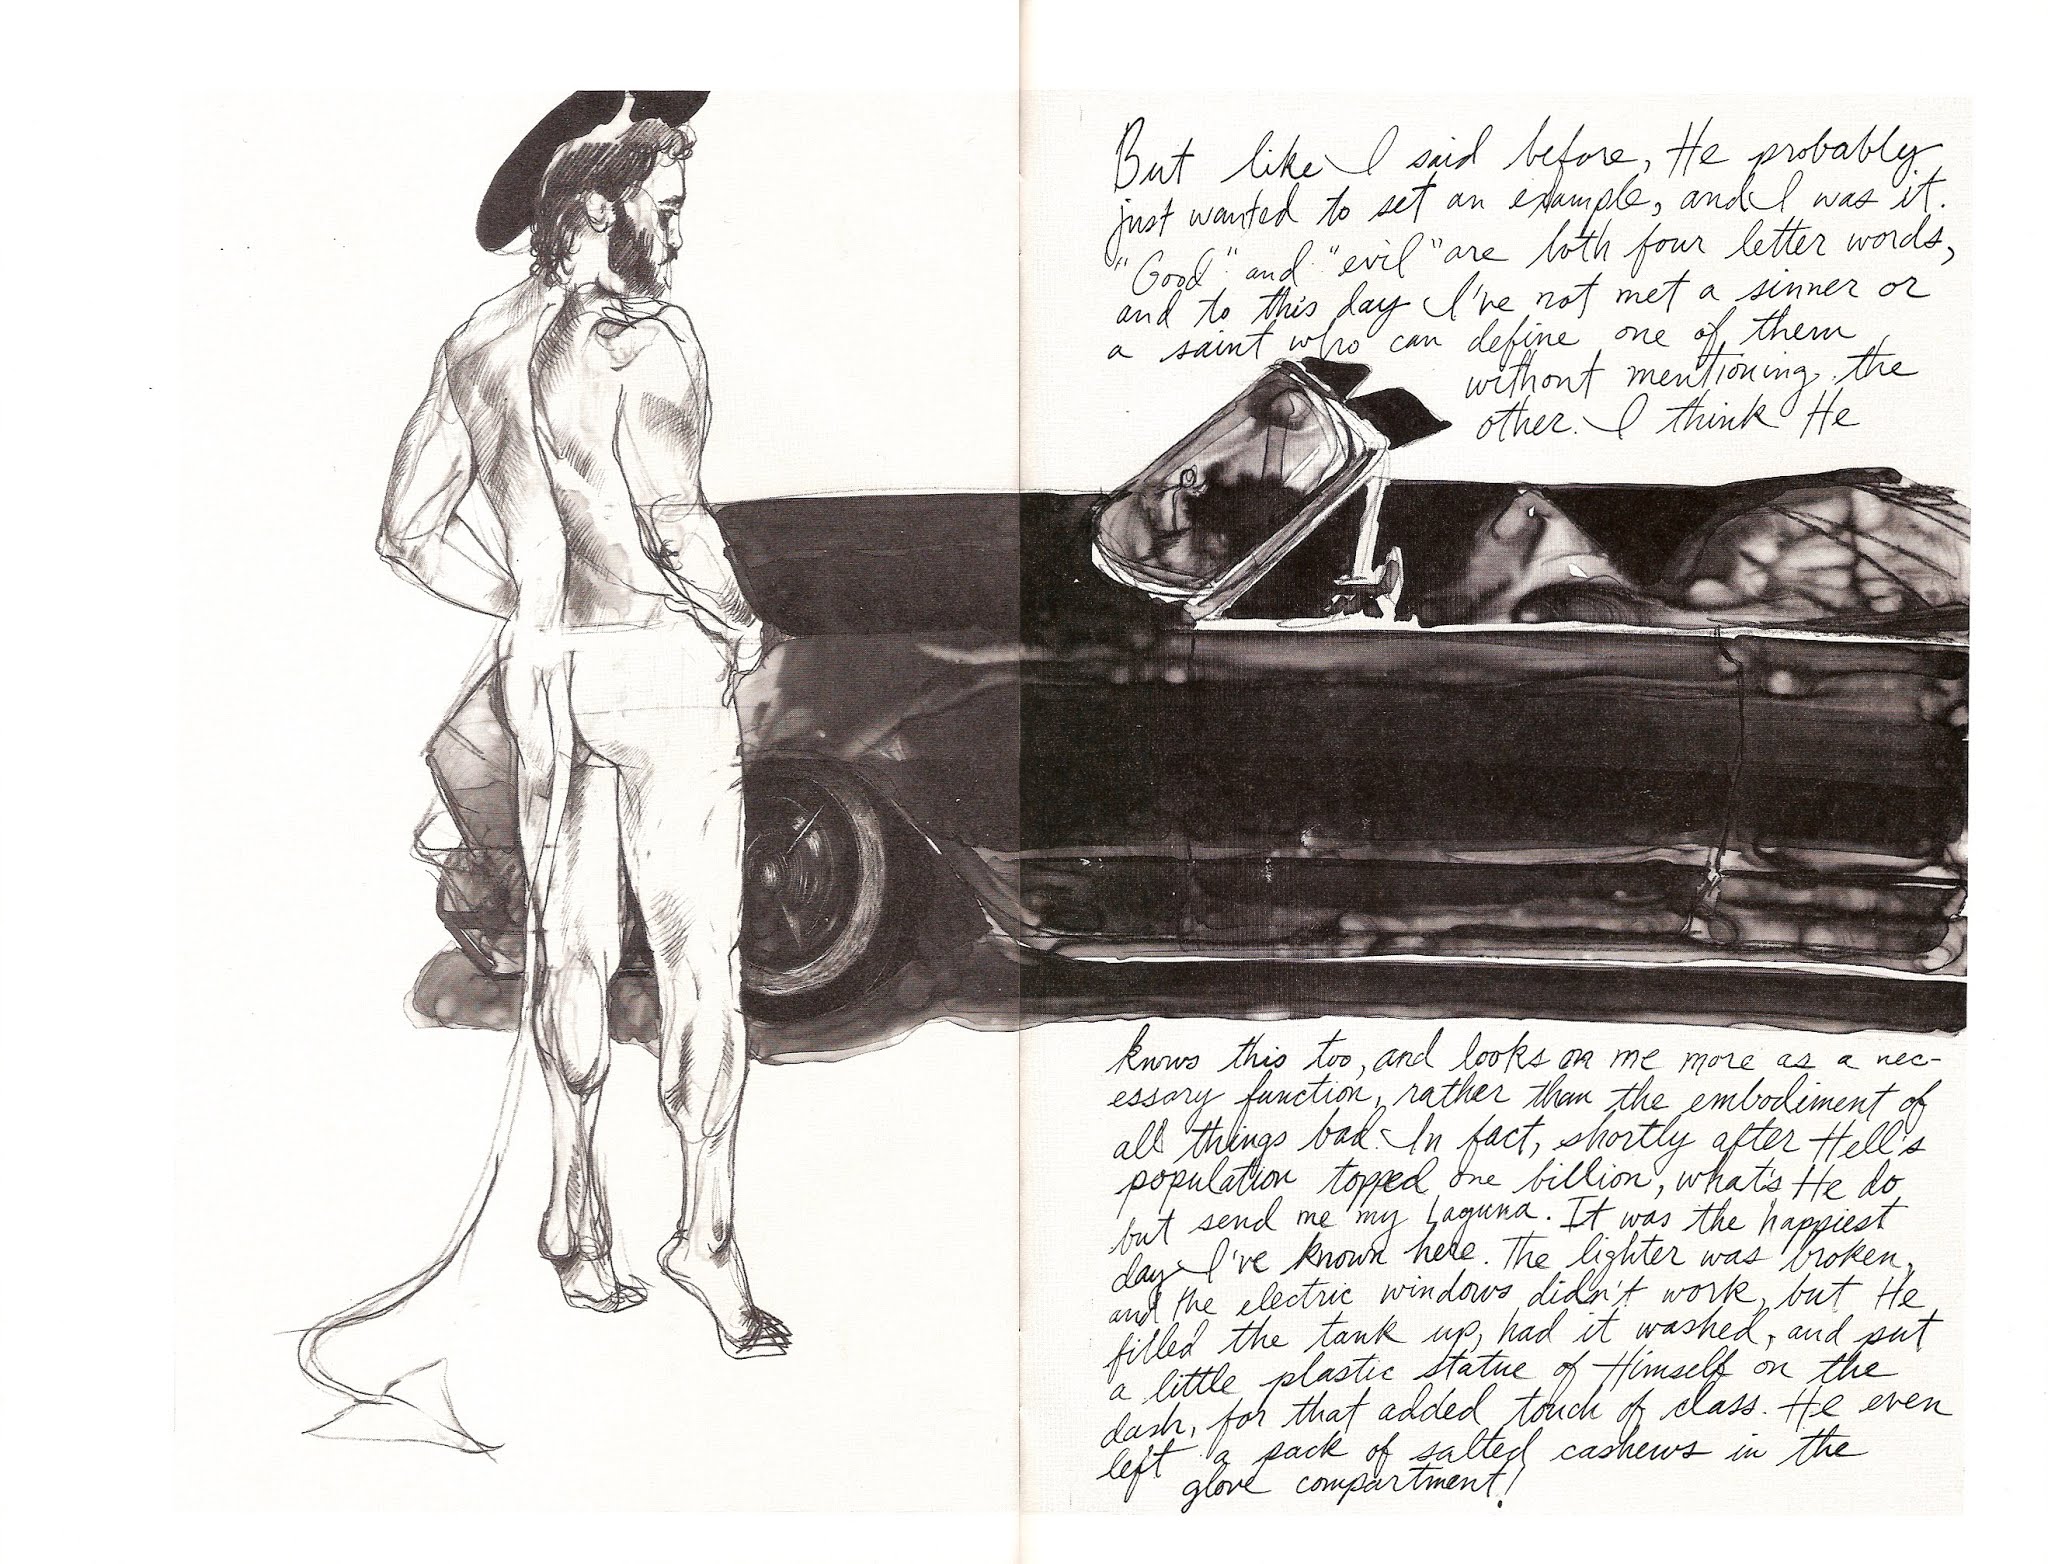 But like I said before, He probably
just wanted to set an example, and I was it.
"Good" and "evil" are both four letter words,
and to this day I've not met a sinner or
a saint who can define one of them
without mentioning the
other. I think He
knows this too, and looks on me more as a nec-
essary function, rather than the embodiment of
all things bad. In fact, shortly after Hell's
population topped one billion, what's He do
but send me my Laguna. It was the happiest
day I've known here. The lighter was broken,
and the electric windows didn't work, but He
filled the tank up, had it washed, and put
a little plastic statue of Himself on the
dash, for that added touch of class. He even
left a pack of salted cashews in the
glove compartment!